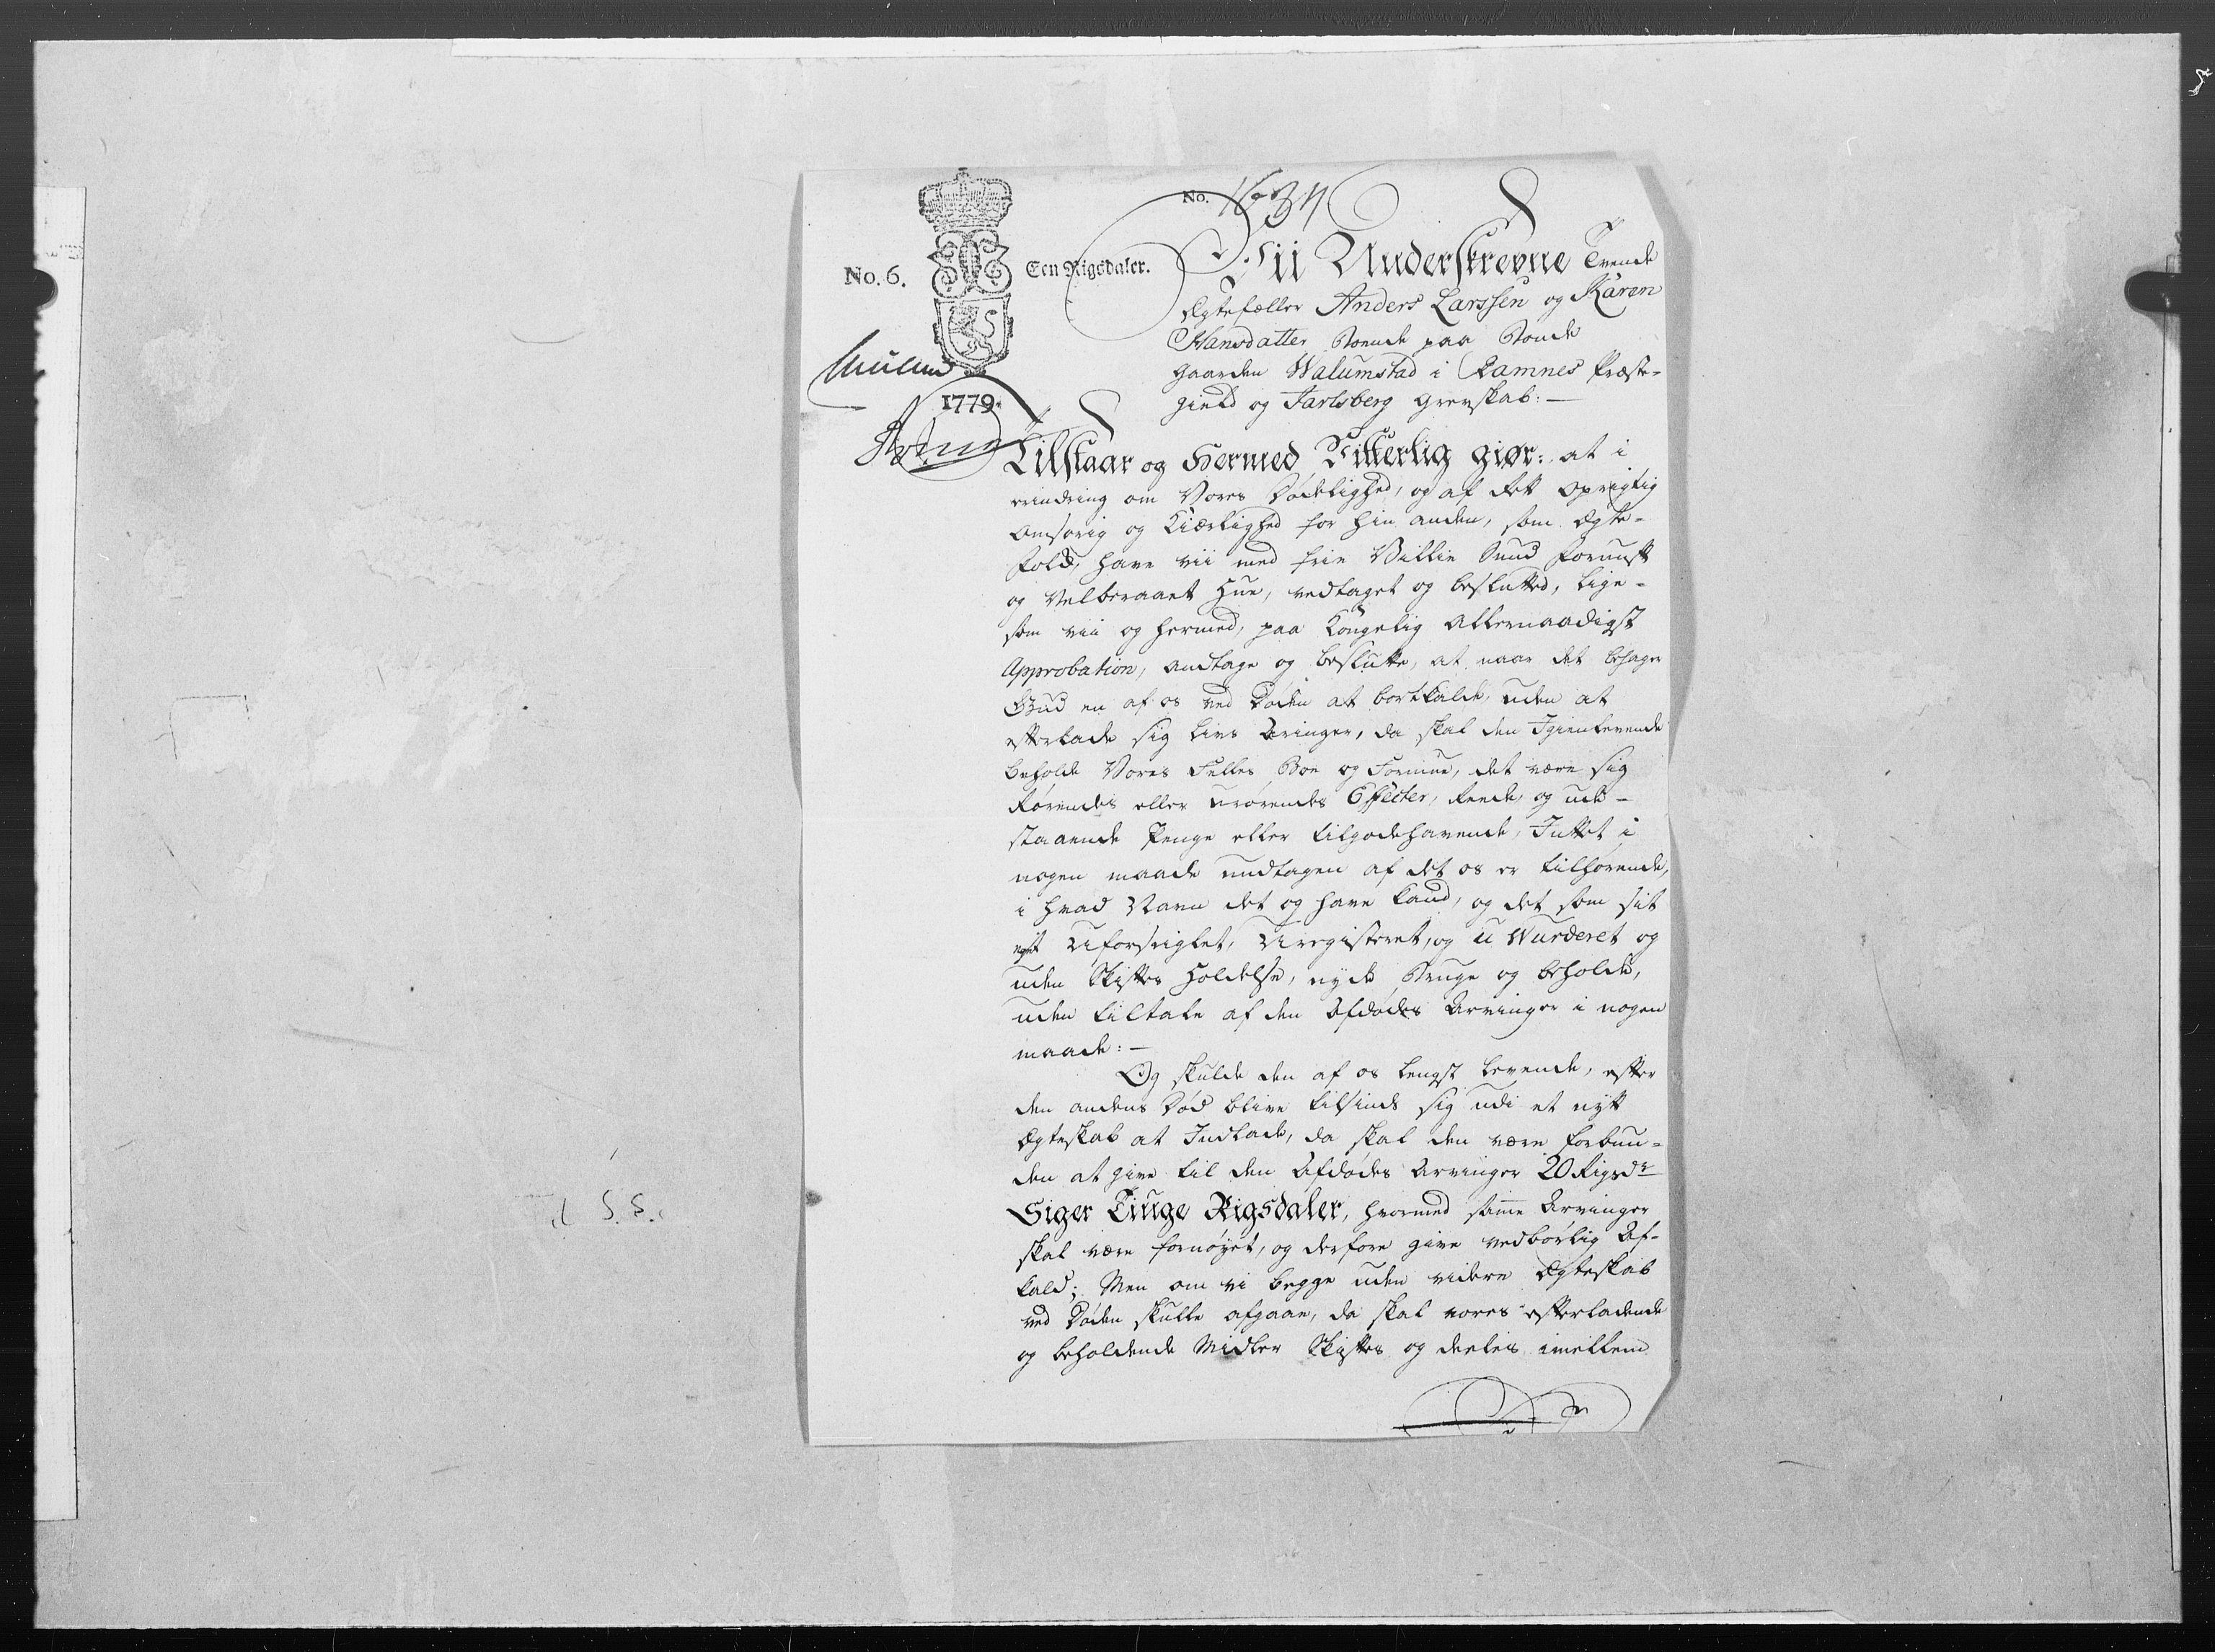 No. 1634
No. 6.
Een Rigsdaler.
1779.
Vii Underskrevne Tvende
Ægtefæller Anders Larssen og Karen
Hansdatter Boende paa Bonde
Gaarden Walumstad i Ramnes Præste-
gield og Jarlsberg Grevskab:
Tilstaar og Hermed Vitterlig giør: at i
erindring om Vores Dødelighed, og af Rett Oprigtig
Omsorig og Kiærlighed for hin anden, som Ægte-
folk, have vii med frie Villie Sund Fornuft
og Velberaaet Hue, vedtaget og beslutted, lige-
som vii og hermed, paa Kongelig Allernaadigst
Approbation, andtage og beslutte, at naar det behager
Gud en af os ved Døden at bortkalde, uden at
efterlade sig Livs Arvinger, da skal den Igienlevende
beholde Vores Felles Boe og Formue, det være sig
Rørendes eller Urørendes Effecter, Rede, og ude-
staaende Penge eller tilgodehavende, Intet i
nogen maade undtagen af det os er tilhørende,
i hvad Navn det og have kand, og det som sit
eget Uforseiglet, Uregisteret, og U Wurderet og
uden Skiftes Holdelse, nyde Bruge og beholde,
uden tiltale af den Afdødes Arvinger i nogen
maade:
Og skulde den af os lengst levende, efter
den andens Død blive tilsinds sig udi et nytt
Ægteskab at Indlade, da skal den være forbun-
den at give til den Afdødes Arvinger 20 Rigsdr
Siger Tiuge Rigsdaler, hvormed samme Arvinger
skal være fornøyet, og derfore give vedbørlig Af-
kald; Men om vi begge uden videre Ægteskab
ved Døden skulle afgaae, da skal vores efterladende
og beholdende Midler Skiftes og deeles imellem